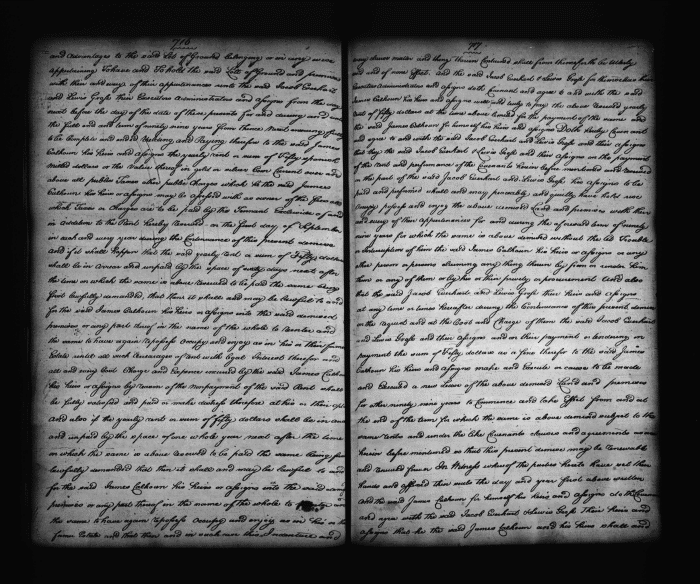 716
and advantages to the said Lot of Ground belonging or in any wise
appertaining To have and To hold the said Lott of Ground and premises
with their and every of their appurtenances unto the said Jacob Eichart
and Lewis Grose their Executors Administrators and Assigns from the day
next before the day of the date of these presents for and during and
the full end and term of ninety nine years from thence Next ensuing fully
to be Complete and ended Yielding and Paying therefor to the said James
Calhoun his Heirs and Assigns the yearly rent or sum of Fifty
Milled dollars or the value thereof in gold or silver Coin Current over and
above all publick Taxes other publick Charges which to the said James
Calhoun his Heirs or assigns may be assessed with as owner of the Ground
which Taxes or Charges are to be paid by the Tennant
in addition to the Rent hereby reserved on the first day of September
in each and every year during the Continuance of this present demise
And if it shall happen that the said yearly rent or sum of Fifty dollars
shall be in arrear and unpaid by the space of sixty days next after
the time on which the same is above reserved to be paid the same being
first lawfully demanded, that then it shall and may be lawful to and
for the said James Calhoun his heirs or assigns into the said demised
premises or any part thereof in the name of the whole to reenter and
the same to have again repossess occupy and enjoy as in his or their former
Estate untill all such arrearages of rent with legal Interest therefor and
all and every Cost Charge and expence incurred by the said James Calhoun
his heirs or assigns by reason of the nonpayment of the said Rent shall
be fully satisfied and paid or make distress therefor at his or their
And also if the yearly rent or sum of Fifty dollars shall be in
and unpaid by the space of one whole year next after the time
on which the same is above reserved to be paid the same being first
lawfully demanded that then it shall and may be lawful to and
for the said James Calhoun his heirs or assigns into the said demised
premises or any part thereof in the name of the whole to
the same to have again repossess occupy and enjoy as in his or their
former Estate and that then and in such case this Indenture and
77
every clause matter and thing therein Contained shall from thenceforth be utterly
void and of none effect. And the said Jacob Eichart & Lewis Grose for themselves their
Executors Administrators and assigns doth Covenant and agree to and with the said
James Calhoun his heirs and assigns well and truly to pay the above reserved yearly
rent of Fifty dollars at the time above limited for the payment of the same and
the said James Calhoun for himself his heirs and assigns Doth hereby Covenant
and agree to and with the said Jacob Eichart and Lewis Grose and their Assigns
that they the said Jacob Eichart & Lewis Grose and their assigns on the payment
of the rent and performance of the Covenants herein before mentioned and reserved
on the part of the said Jacob Eichart and Lewis Grose his Assigns to be
paid and performed shall and may peaceably and quietly have hold use
occupy possess and enjoy the above demised Land and premises with their
and every of their Appurtenances for and during the aforesaid term of ninety
nine years for which the same is above demised without the let Trouble
or interruption of him the said James Calhoun his heirs or assigns or any
other person or persons claiming any thing therein by from or under him
them or any of them or by his or their privity or procurement And also
that the said Jacob Eichart and Lewis Grose their Heirs and Assigns
at any time or times hereafter during the Continuance of this present demise
on the request and at the Cost and Charge of them the said Jacob Eichart
and Lewis Grose and their assigns and on their payment or tendering in
payment the sum of Fifty dollars as a fine therefor to the said James
Calhoun his Heirs and Assigns make and Execute or cause to be made
and Executed a new Lease of the above demised Land and premises
for other ninety nine years to Commence and take Effect from and at
the end of the term for which the same is above demised subject to the
same rents and under the like Covenants clauses and agreements as are
herein before mentioned so that this present demise may be renewable
and renewed forever In Witness whereof the parties hereto have set their
hands and affixed their seals the day and year first above written
And the said James Calhoun for himself his heirs and assigns doth Covenant
and agree with the said Jacob Eichart & Lewis Grose Their heirs and
Assigns that he the said James Calhoun and his heirs shall and